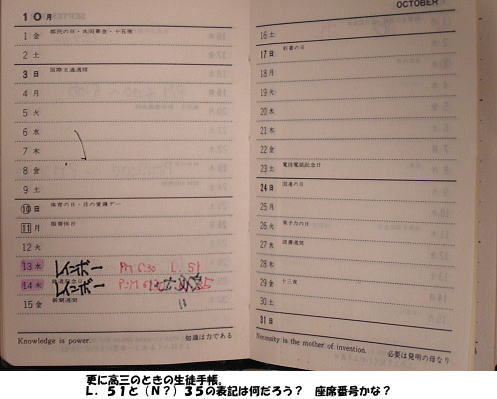 10月
1 金 都民の日・共同募金・十五夜
2 土
3 日 国際文通週間
4 月
5 火
6 水
7 木
8 金
9 土
10 日 体育の日・目の愛護デー
11 月 振替休日
12 火
13 水 レインボー PM 6:30 L. 51
14 木 鉄道記念日 レインボー
15 金 新聞週間
Knowledge is power. 知識は力である
OCTOBER
16 土
17 日 貯蓄の日
18 月
19 火
20 水
21 木
22 金
23 土 電信電話記念日
24 日 国連の日
25 月
26 火 原子力の日
27 水 読書週間
28 木
29 金 十三夜
30 土
31 日
Necessity is the mother of invention. 必要は発明の母なり
更に高三のときの生徒手帳。
L.51と(N?)35の表記は何だろう? 座席番号かな?